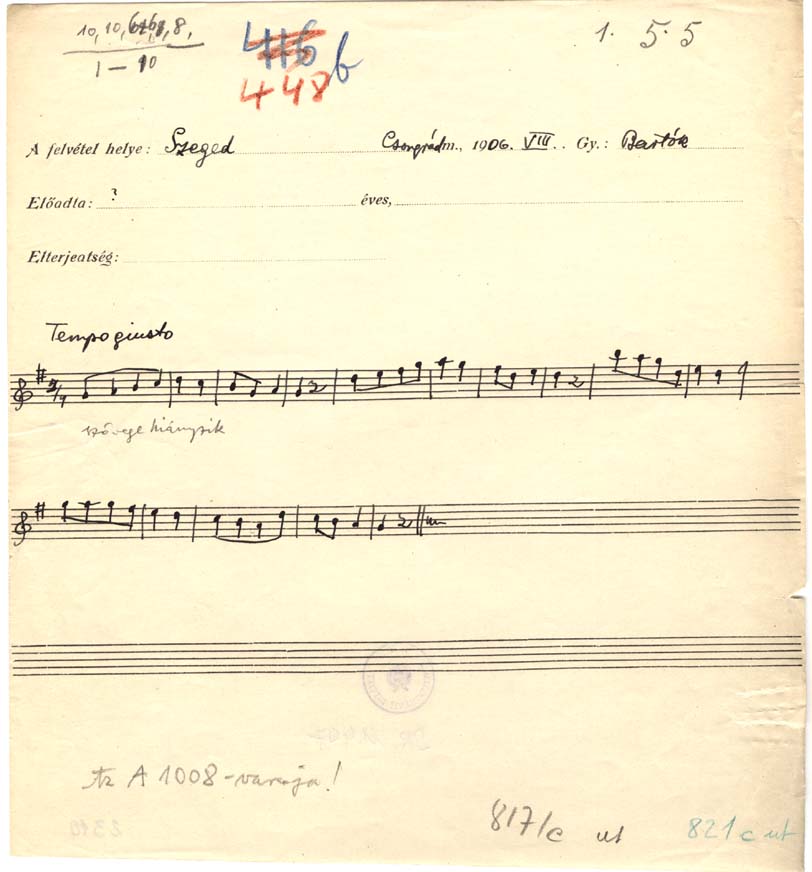 10, 10, 8,
1 – 10
448
b
1. 5. 5
A felvétel helye: Szeged Csongrádm., 1906. VIII. . Gy.: Bartók
Előadta: ? éves,
Elterjeatség:
Tempo giusto
2/4
szövege hiányzik
Az A 1008-varja!
817/c ut
821 c ut